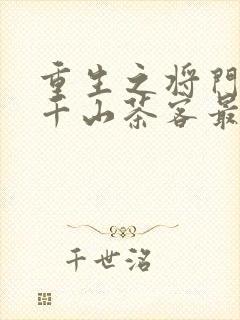 重生之将门
千山茶客最
千世洺